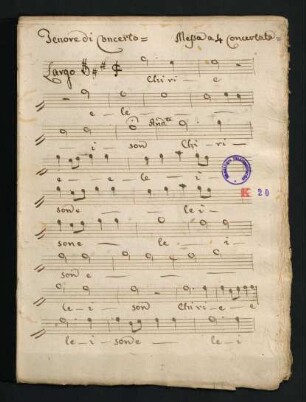 Tenore di Concerto= Messa a 4 Concertata
Largo
Chi ri – e
e – le –
And.te
i – son Chi – ri –
e – e – le – i –
son e – – le i –
son e – le – i
son e –
le – i – son Chi ri – e – e
le – i – son e – le i
K 20